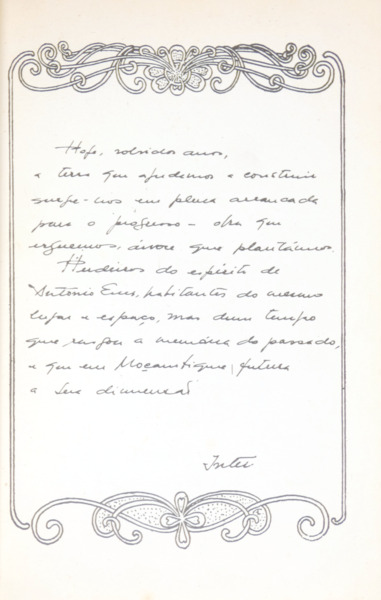 Hoje, volvidos anos,
a terra que ajudamos a construir
surge-nos em plena arrancada
para o progresso - obra que
erguemos, árvore que plantámos.
Herdeiros do espírito de
António Enes, habitantes do mesmo
lugar e espaço, mas dum tempo
que rasgou a memória do passado,
e que em Moçambique futura
a sua dimensão